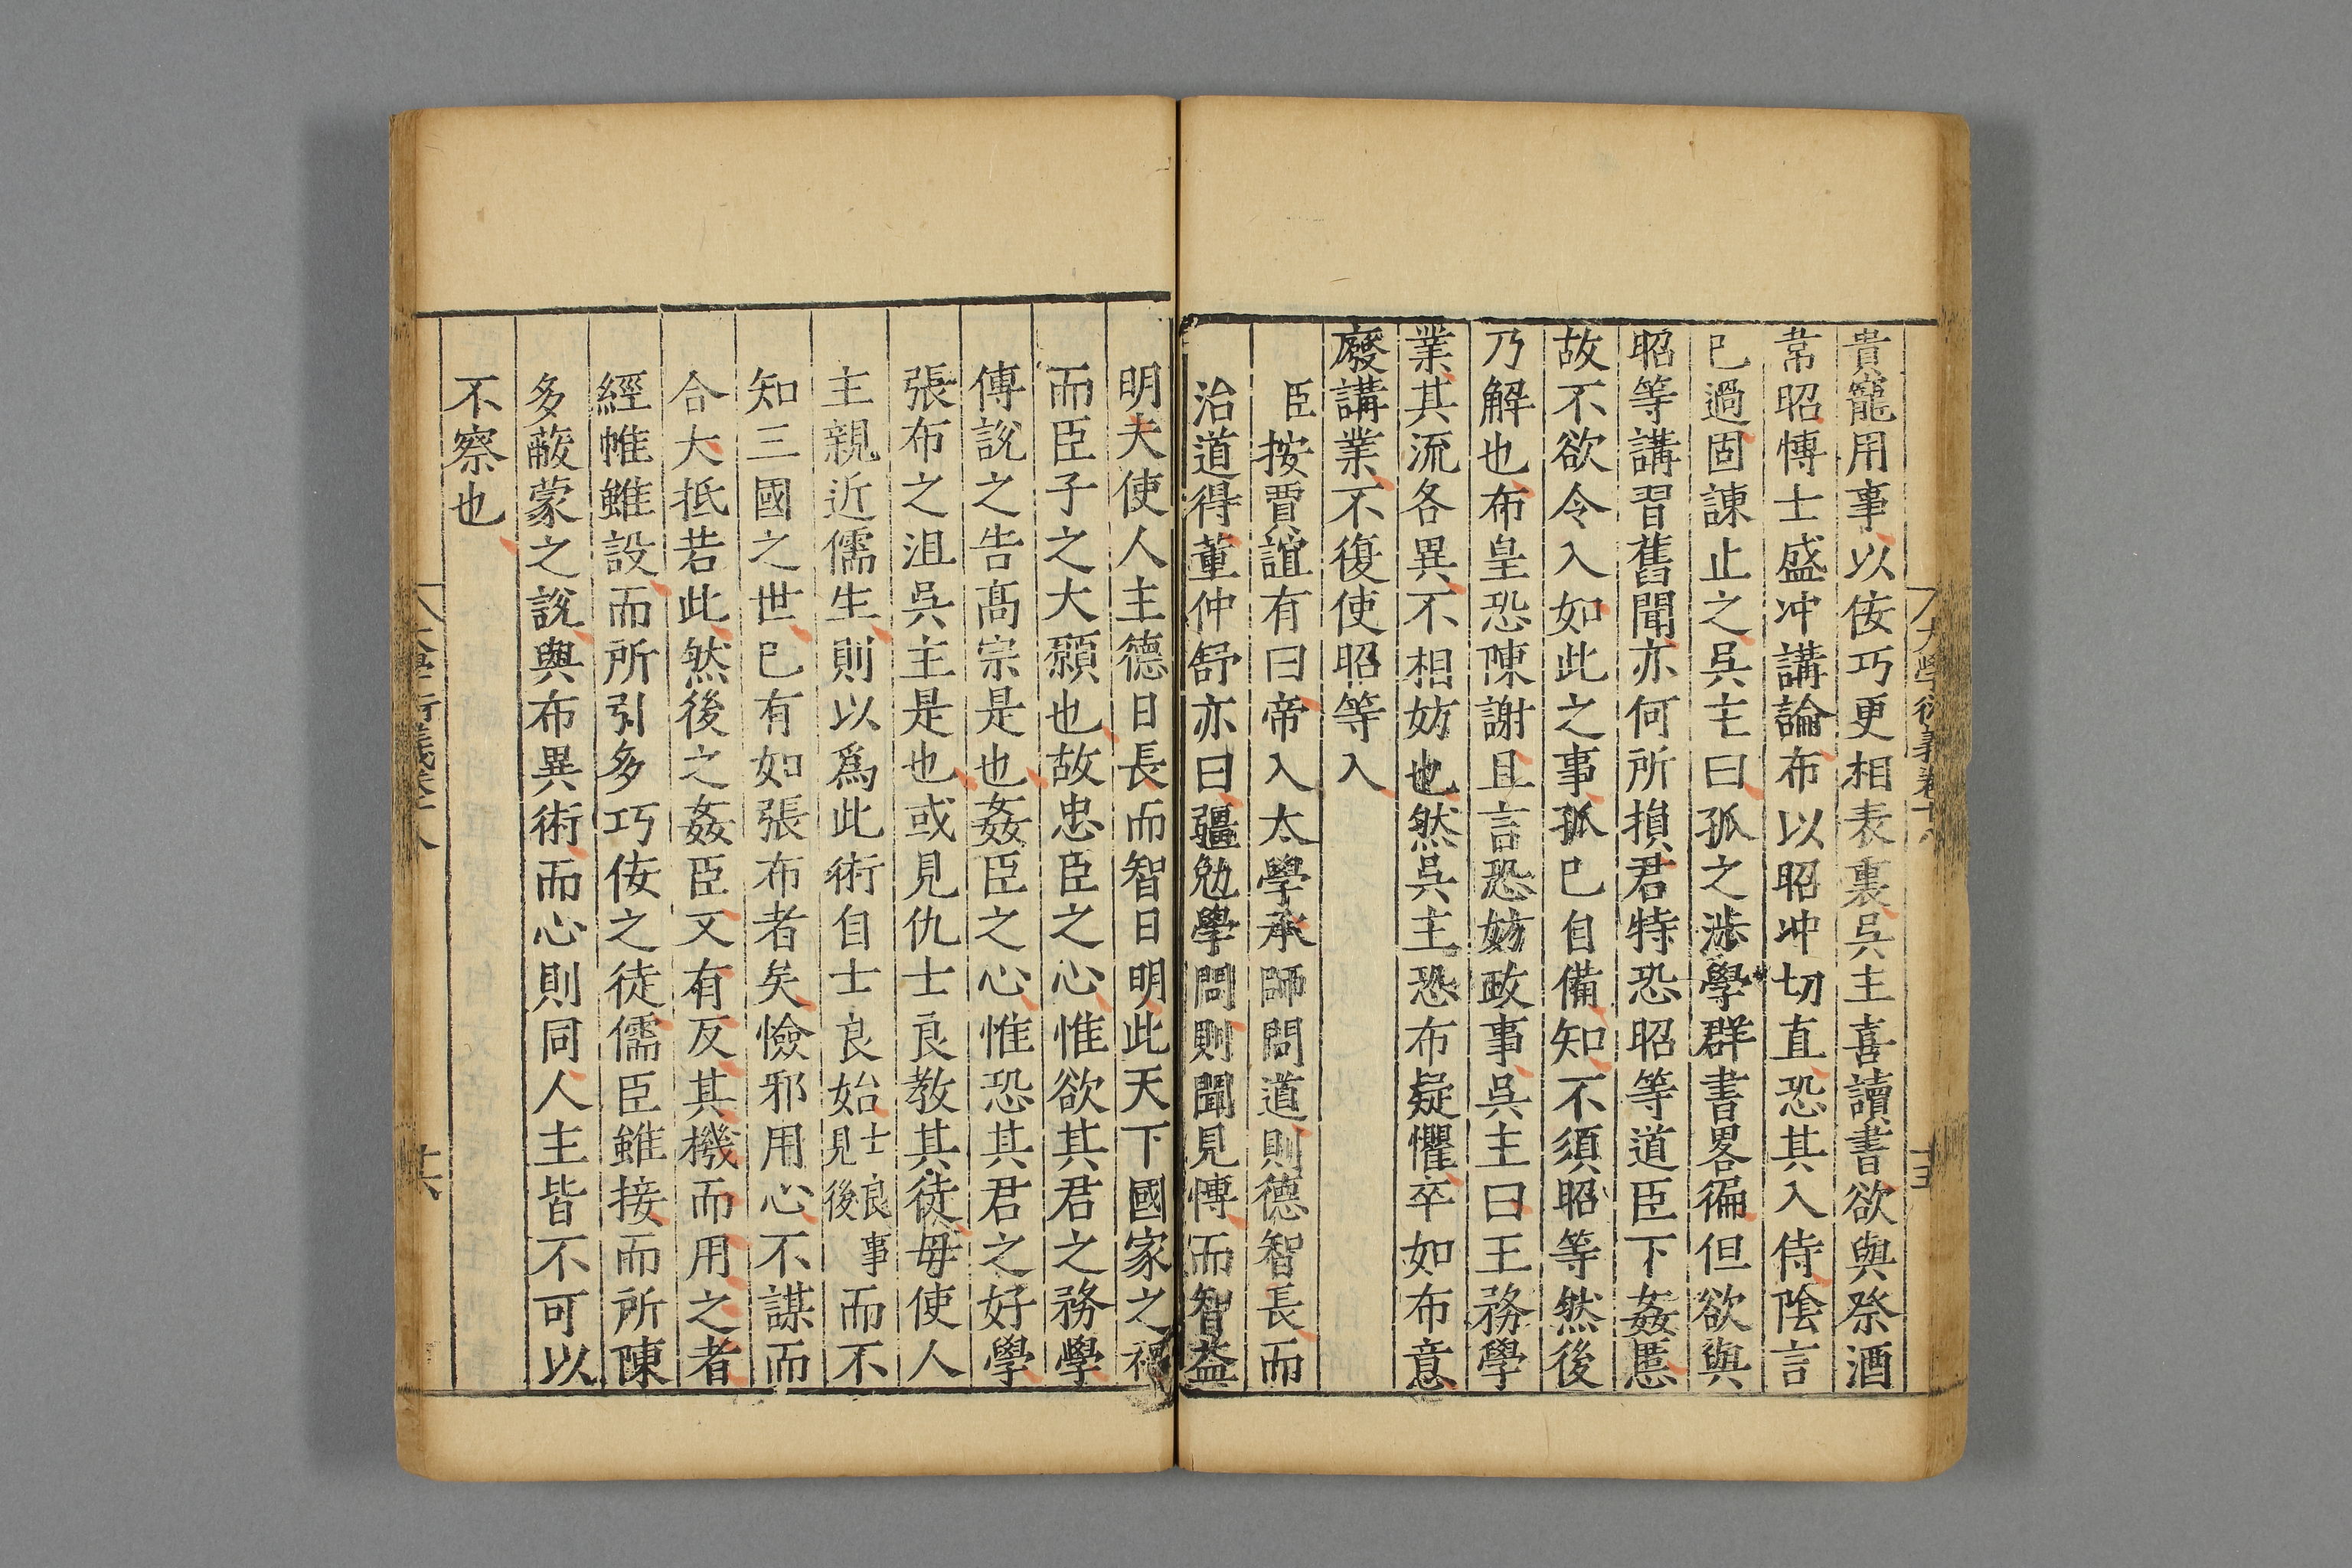 大學衍義卷十八
十五
貴寵用事以佞巧更相表裏吳主喜讀書欲與祭酒
韋昭愽士盛冲講論布以昭冲切直恐其入侍隂言
已過固諌止之吳主曰孤之涉學群書畧徧但欲與
昭等講習舊聞亦何所損君特恐昭等道臣下姦慝
故不欲令入如此之事孤已自備知不須昭等然後
乃解也布皇恐陳謝且言恐妨政事吳主曰王務學
業其流各異不相妨也然吳主恐布疑懼卒如布意
廢講業不復使昭等入
臣按賈誼有曰帝入太學承師問道則德智長而
治道得董仲舒亦曰彊勉學問則聞見愽而智益
明夫使人主德日長而智日明此天下國家之福
而臣子之大願也故忠臣之心惟欲其君之務學
傅說之告髙宗是也姦臣之心惟恐其君之好學
張布之沮吳主是也或見仇士良教其徒毋使人
主親近儒生則以爲此術自士良始士良事見後而不
知三國之世已有如張布者矣憸邪用心不謀而
合大抵若此然後之姦臣又有反其機而用之者
經帷雖設而所引多巧佞之徒儒臣雖接而所陳
多蔽蒙之說與布異術而心則同人主皆不可以
不察也
大學衍義卷十八
十六